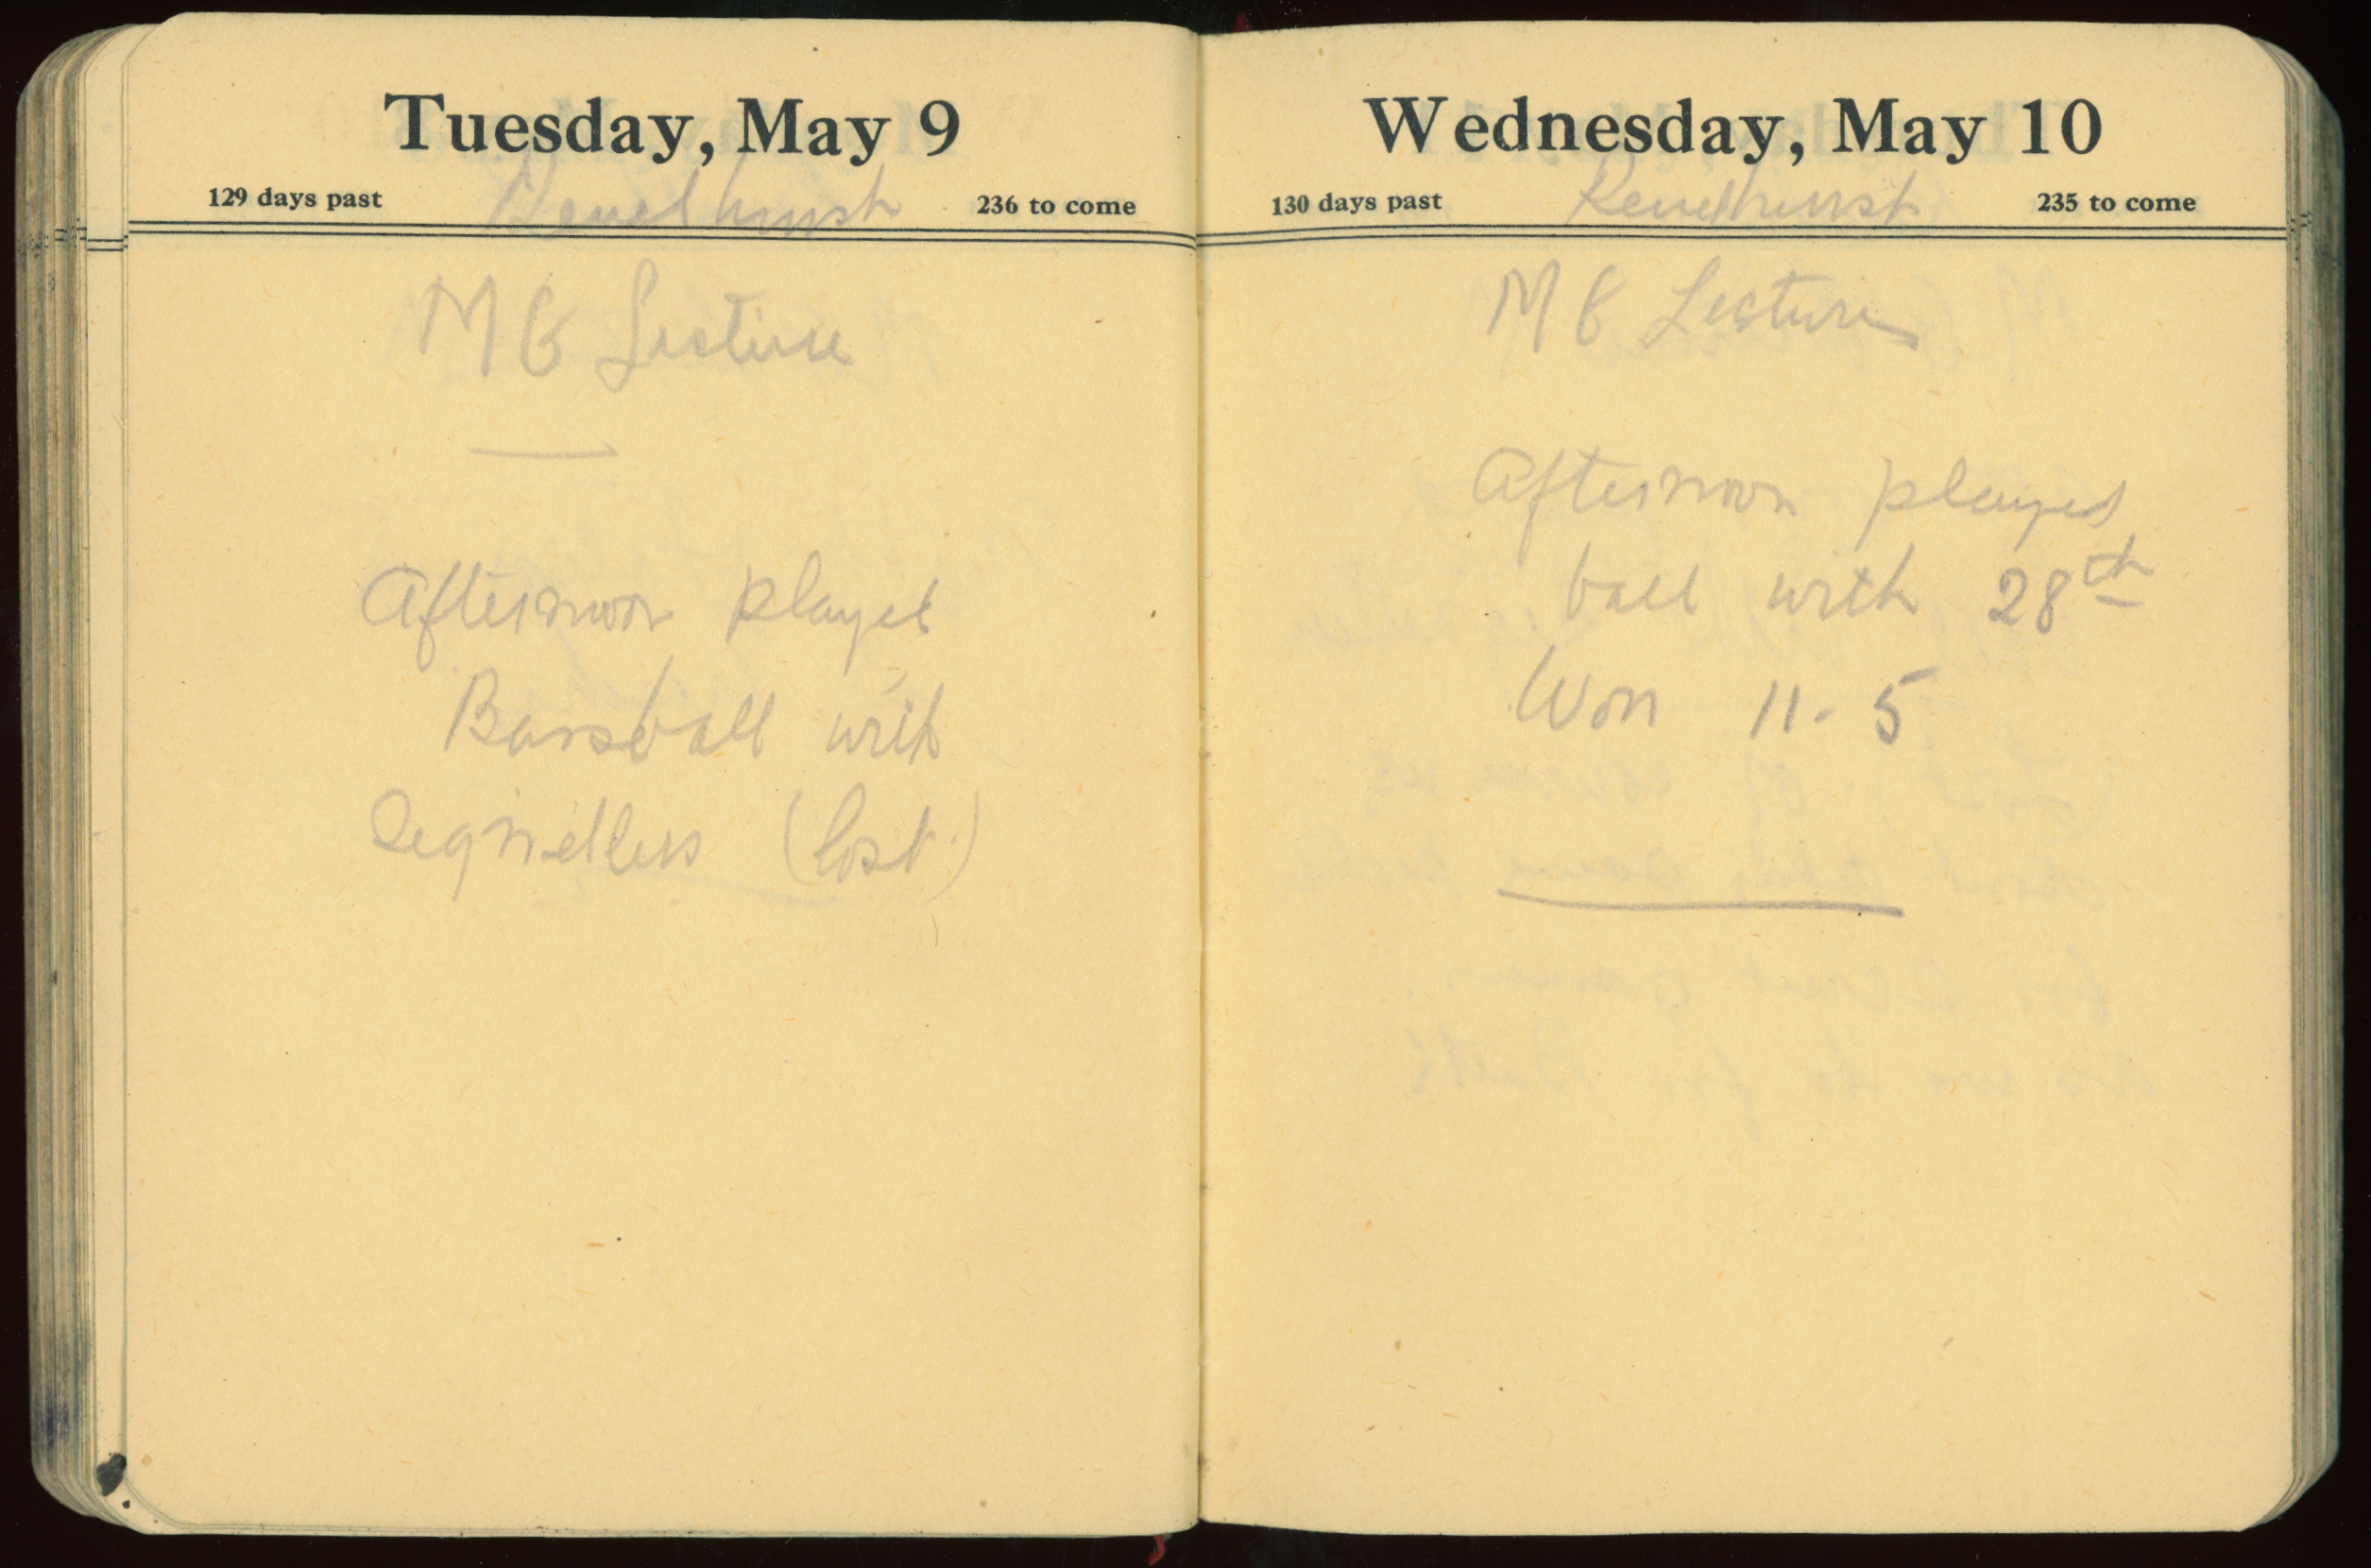 Tuesday, May 9
129 days past
236 to come
M G Lecture
Afternoon played
Baseball with
(Lost.)
Wednesday, May 10
130 days past
235 to come
M G Lecture
Afternoon played
ball with 28th
Won 11-5